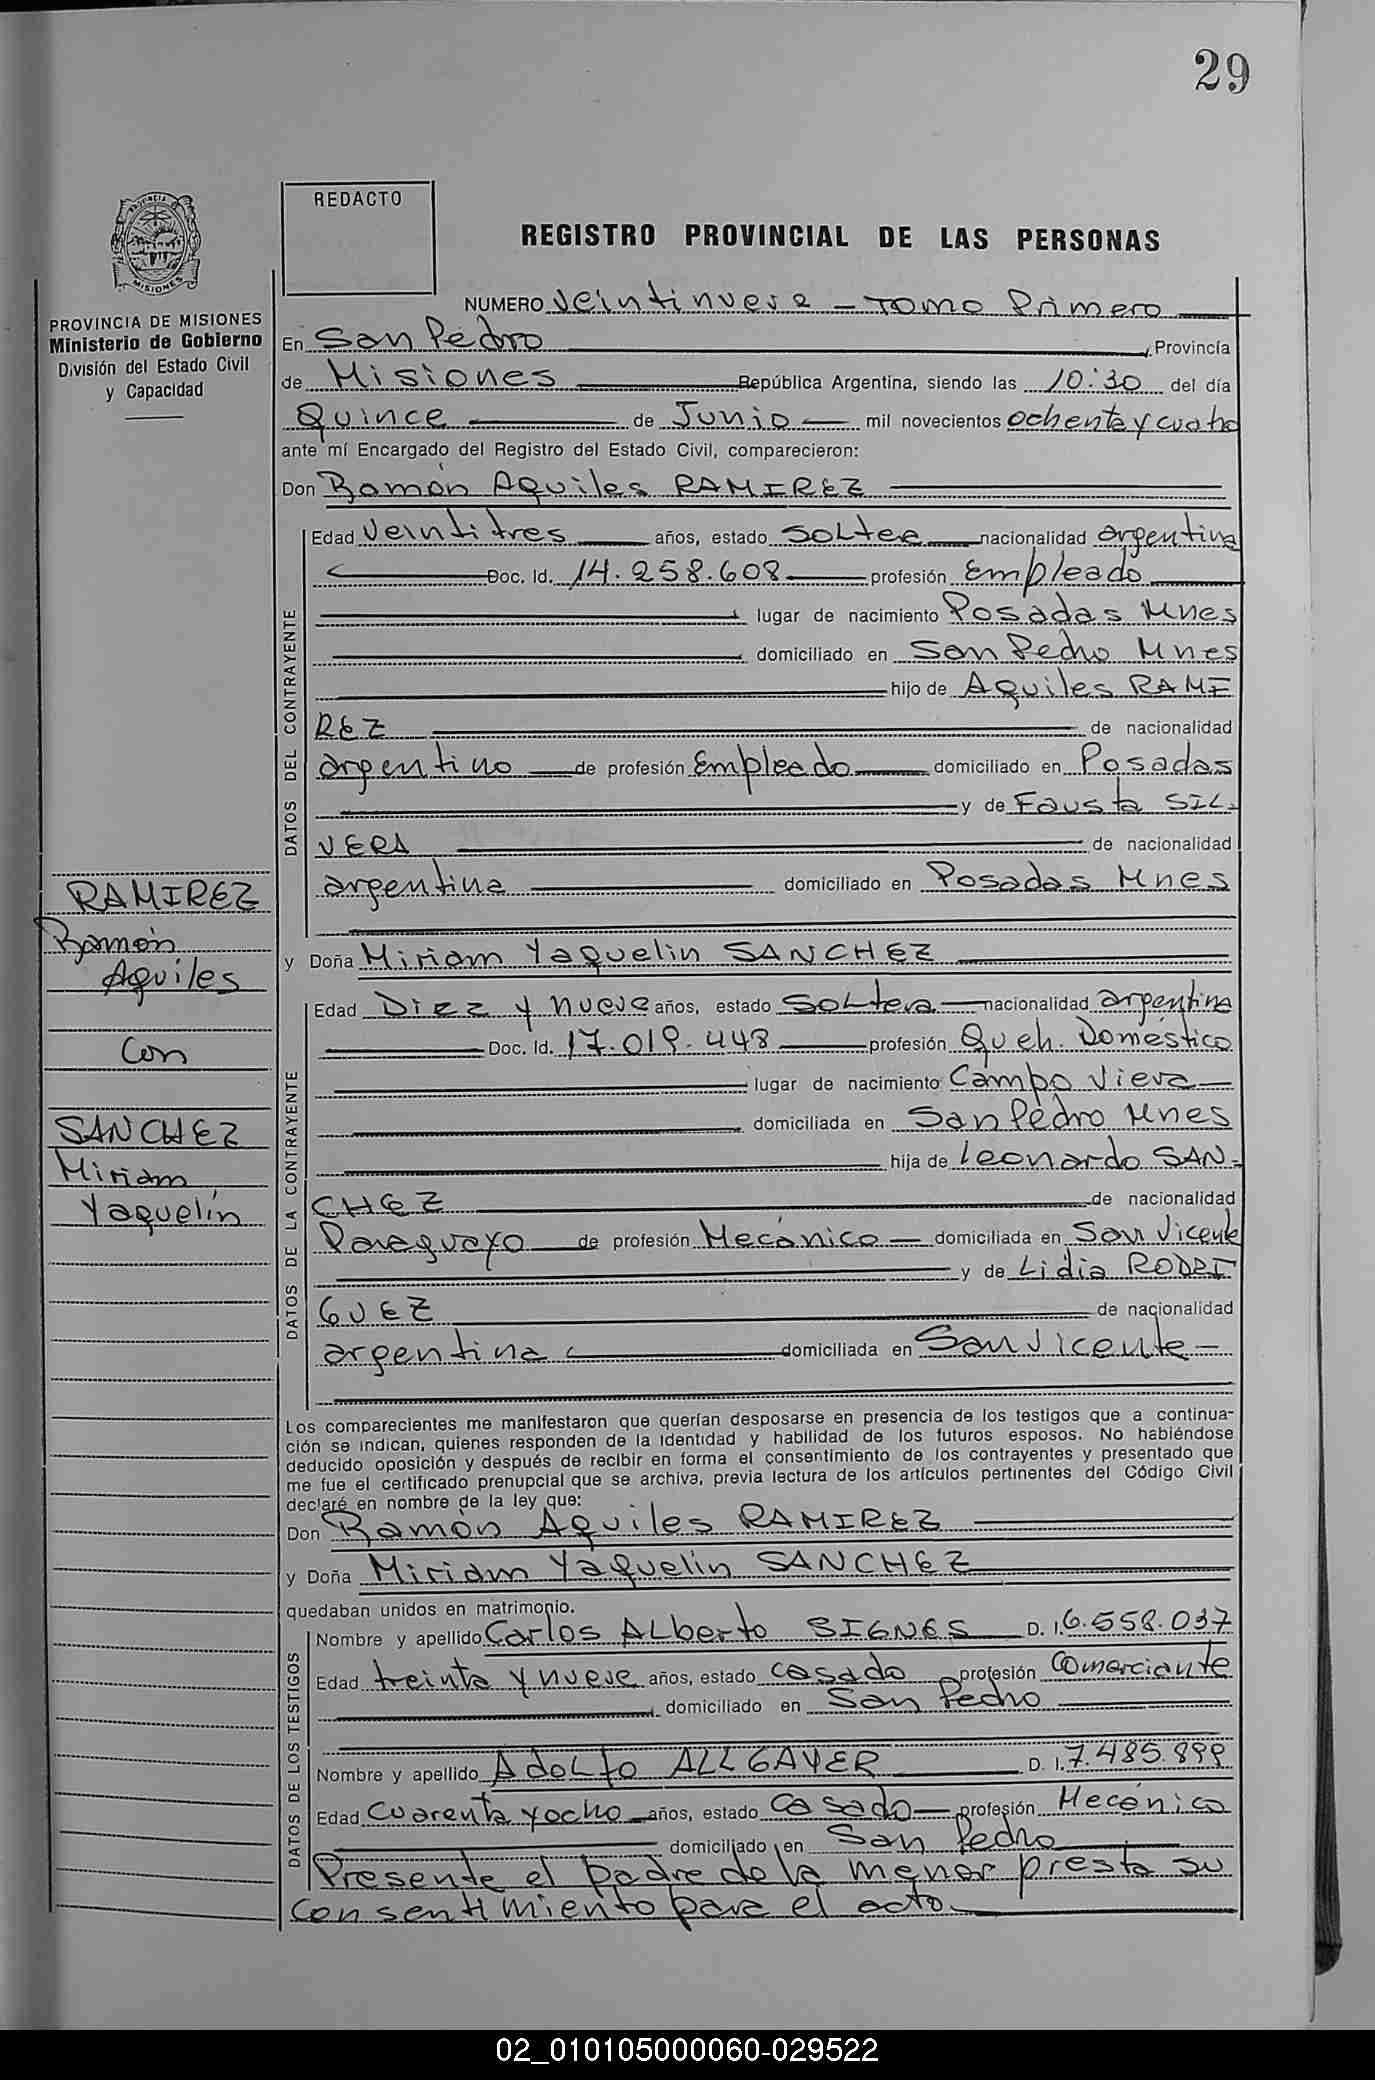 29
REDACTO
REGISTRO PROVINCIAL DE LAS PERSONAS
PROVINCIA DE MISIONES
Ministerio de Gobierno
División del Estado Civil
y Capacidad
NUMERO Veintinueve - Tomo Primero
En San Pedro Provincia
de Misiones República Argentina, siendo las 10:30 del día
Quince de Junio mil novecientos ochenta y cuatro
ante mí Encargado del Registro del Estado Civil, comparecieron:
Don Ramón Aquiles RAMIREZ
DATOS DEL CONTRAYENTE
Edad Veintitres años, estado Soltero nacionalidad argentina
Doc. Id. 14.258.608 profesión Empleado
lugar de nacimiento Posadas Mnes
domiciliado en San Pedro Mnes
hijo de Aquiles RAMI
REZ de nacionalidad
argentino de profesión Empleado domiciliado en Posadas
y de Fausta SIL-
VERA de nacionalidad
argentina domiciliado en Posadas Mnes
RAMIREZ
Ramón
Aquiles
Con
SANCHEZ
Miriam
Yaquelín
y Doña Miriam Yaquelin SANCHEZ
DATOS DE LA CONTRAYENTE
Edad Diez y nueve años, estado Soltera nacionalidad argentina
Doc. Id. 17.019.448 profesión Queh. Doméstico
lugar de nacimiento Campo Viera
domiciliada en San Pedro Mnes
hija de Leonardo SAN-
CHEZ de nacionalidad
Paraguayo de profesión Mecánico domiciliada en San Vicente
y de Lidia RODRI
GUEZ de nacionalidad
argentina domiciliada en San Vicente
Los comparecientes me manifestaron que querían desposarse en presencia de los testigos que a continua-
ción se indican, quienes responden de la identidad y habilidad de los futuros esposos. No habiéndose
deducido oposición y después de recibir en forma el consentimiento de los contrayentes y presentado que
me fue el certificado prenupcial que se archiva, previa lectura de los artículos pertinentes del Código Civil
declaré en nombre de la ley que:
Don Ramón Aquiles RAMIREZ
y Doña Miriam Yaquelin SANCHEZ
quedaban unidos en matrimonio.
DATOS DE LOS TESTIGOS
Nombre y apellido Carlos Alberto SIGNES D. I. 6.558.037
Edad treinta y nueve años, estado casado profesión Comerciante
domiciliado en San Pedro
Nombre y apellido Adolfo ALLGAYER D. I. 7.485.899
Edad Cuarenta y ocho años, estado Casado profesión Mecánico
domiciliado en San Pedro
Presente el padre de la menor presta su
consentimiento para el acto
02_010105000060-029522